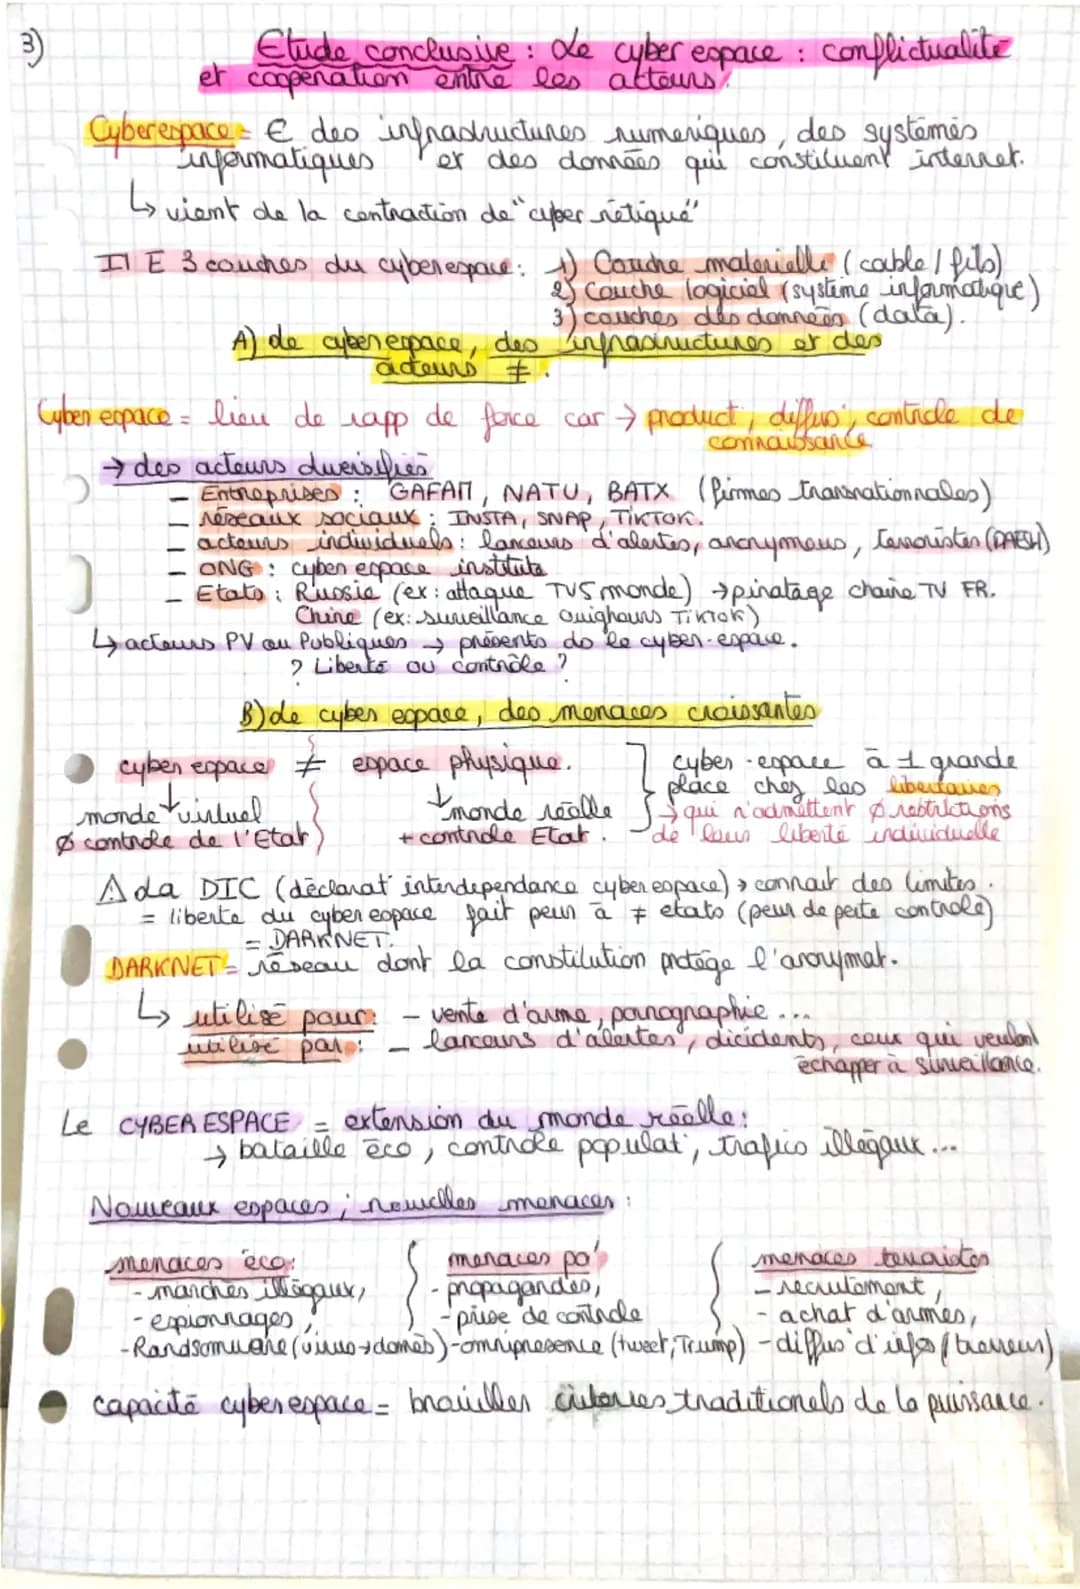 3)
Etude conclusive : Le cyber espace : conflictualité
et coopération entre les acteurs.
Cyberespace = € des infrastructures numeriques, des systèmes
informatiques et des données qui constituent internet.
↳ vient de la contraction de "cyber nétique"
Il E 3 couches du cyberespace : 1) Couche materielle (cable / fils)
2) Couche logiciel (système informatique)
3) couches des données (data).
A) Le cyberespace, des infrastructures et des
acteurs ≠.
Cyber espace = lieu de rapp de force car → product°, diffus°, controle de
connaissance
→ des acteurs diversifiés
- Entreprises : GAFAM, NATU, BATX (firmes transnationnales)
- réseaux sociaux : INSTA, SNAP, TIKTOK.
- acteurs individuels : lanceurs d'alertes, anonymous, terroristes (DAESH)
- ONG : cyber espace institute
- Etats : Russie (ex : attaque TV5 monde) → piratage chaine TV FR.
Chine (ex : surveillance ouighours TikTok)
↳ acteurs PV ou Publiques → présents ds le cyber-espace.
? Liberté ou contrôle ?
B) Le cyber espace, des menaces croissantes
cyber espace ≠ espace physique.
↓ monde virtuel
ø controle de l'Etat
↓ monde réelle
+ controle Etat.
cyber-espace à + grande
place chez les libertaires
→ qui n'admettent ø restrictions
de leur liberté individuelle
⚠ La DIC (déclarat° interdependance cyberespace) → connait des limites.
= liberte du cyberespace fait peur à ≠ etats (peur de perte controle)
= DARKNET.
DARKNET = réseau dont la constitution protège l'anonymat.
↳ utilisé pour : - vente d'arme, pornographie ...
utilisé par : - lanceurs d'alertes, dicidents, ceux qui veulent
échapper à surveillance.
Le CYBER ESPACE = extension du monde réelle :
→ bataille éco, contrôle populat°, trafics illégaux ...
Nouveaux espaces ; nouvelles menaces :
menaces éco :
- marchés illégaux,
- espionnages,
- Randsomware (virus → domés)
menaces po°
- propagandes,
- prise de controle
- omnipresence (tweet, Trump)
menaces terroistes
- recrutement,
- achat d'armes,
- diffus° d'infos (terreur)
capacité cyberespace = brouiller criteres traditionels de la puissance.